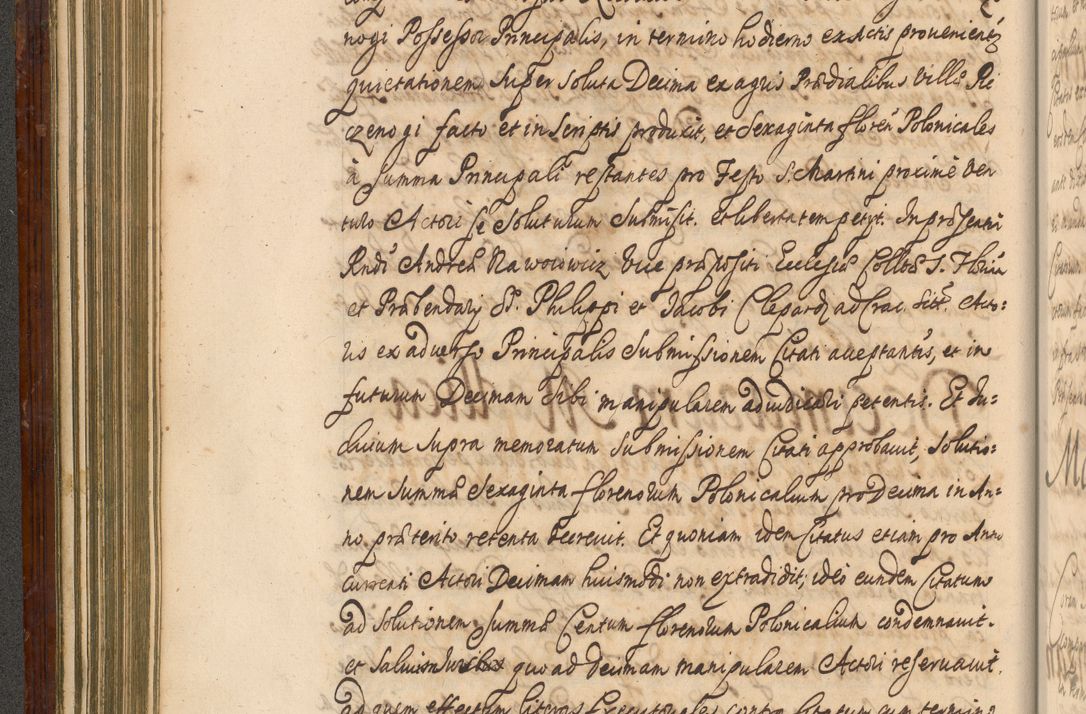 nogi Possessor Principalis, in termino hodierno ex Actis provenienti
quietationem super soluta Decima ex agris Prædialibus Villæ Ri
czenogi facto et in Scriptis produxit, et Sexaginta floren Polonicales
à Summa Principali restantes pro Festo S. Martini proximè ven
turo Actori se Soluturum Submisit. et libertatem petyt. In præsentia
Rndi Andreæ Nawoiowicz Vice præpositi Ecclesiæ Colltæ S. Floria
et Præbendarÿ SS. Philippi et Jacobi Clepardÿ ad Crac. Acto:
ris ex adverso Principalis Submissionem Citati acceptantis, et in
futurum Decimam Sibi manipularem adiudicari petentis. Et Iu:
dicium Supra memoratum Submissionem Citati approbavit, Solutio:
nem Summæ Sexaginta florenorum Polonicalium pro Decima in An:
no præterito retenta decrevit. Et quoniam idem Citatus etiam pro Anno
currenti Actori Decimam huiusmodi non extradidit; ideò eundem Citatum
ad Solutionem Summæ Centum florenorum Polonicalium condemnavit.
et Salvis Iuribus quo ad Decimam manipularem Actori reservavit.
ad quem effectum literas Executoriales contra Citatum cum termino